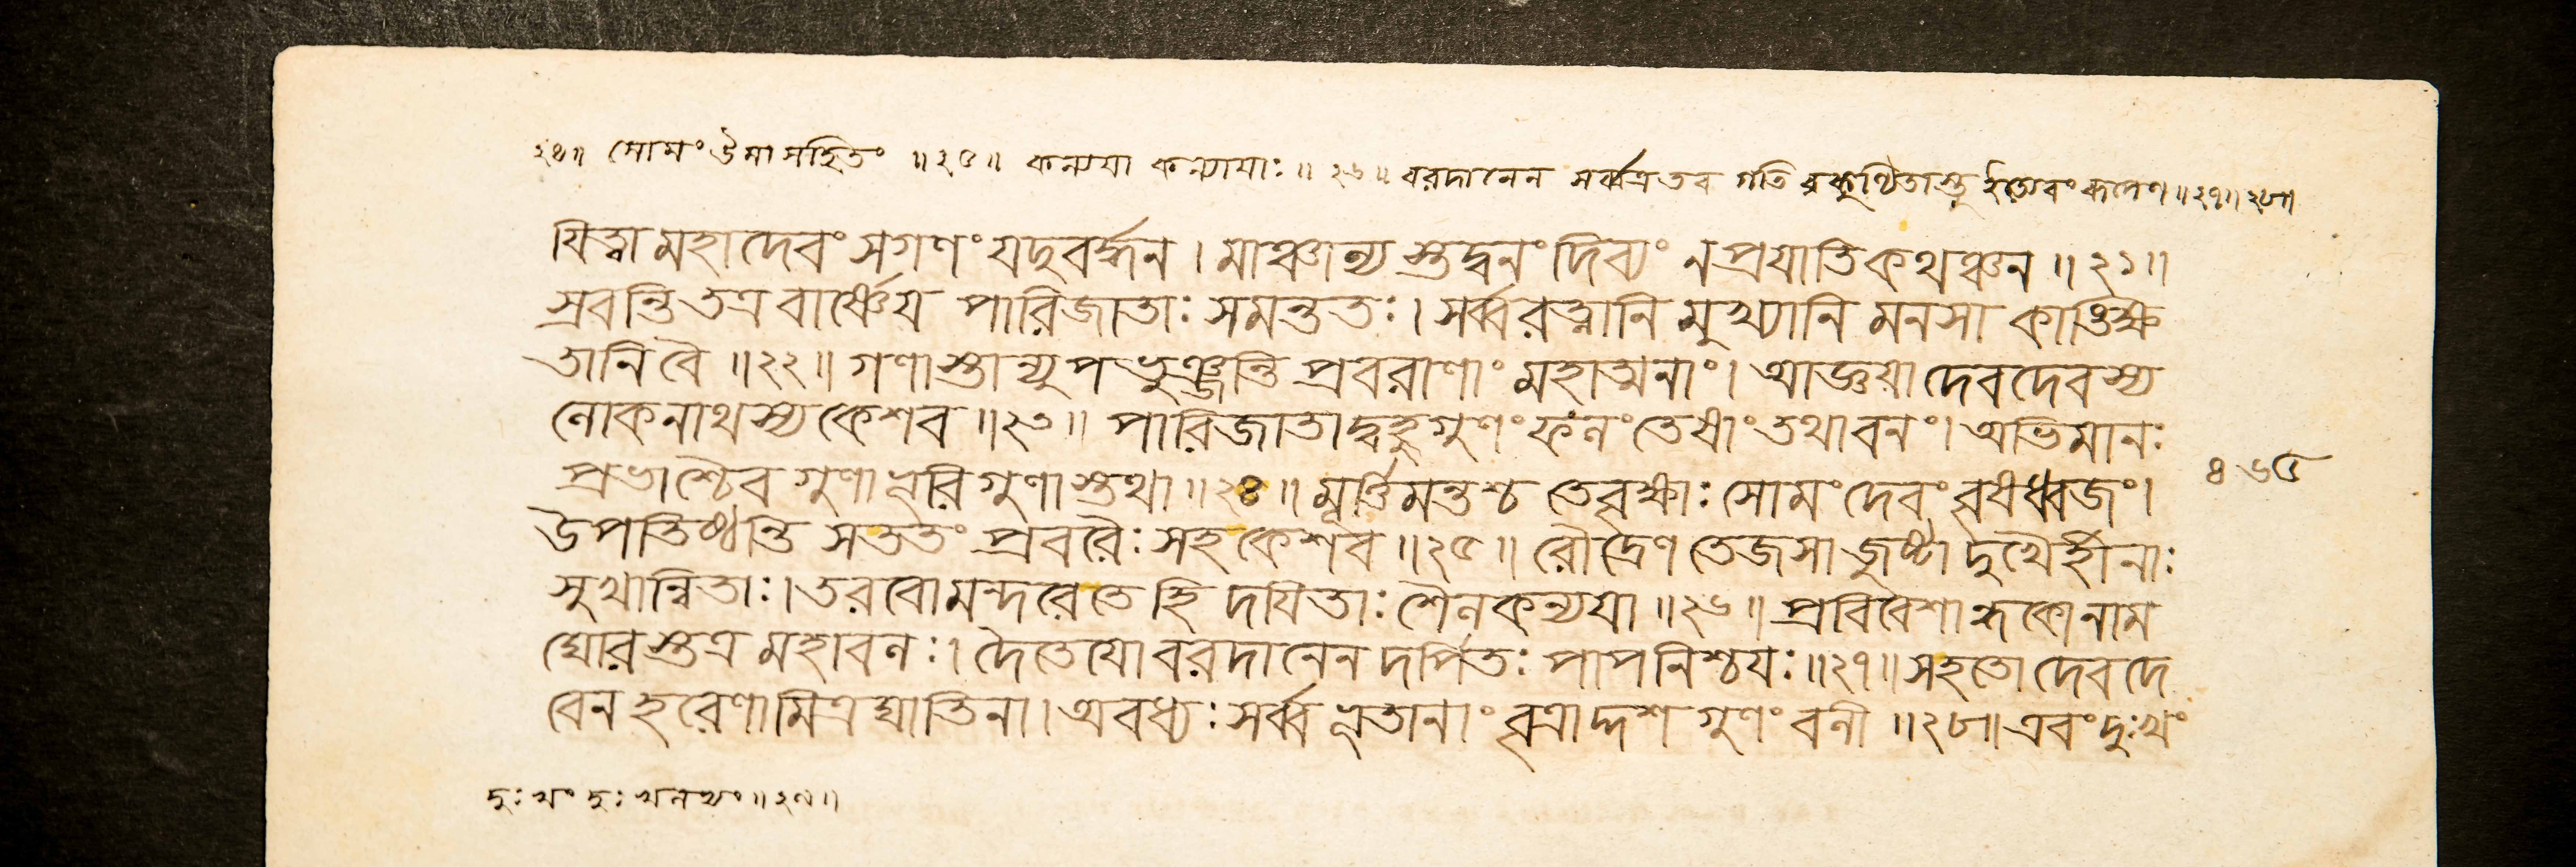 ২৪॥ সোমং উমাসহিতং ॥২৫॥ কন্যযা কন্যাযাঃ ॥২৬॥ বরদানেন সর্ব্বত্র তব গতি রকুণ্ঠিতাস্তু ইত্যেবংরূপেণ ॥২৭॥২৮॥
যিত্বা মহাদেবং সগণং যদুবর্দ্ধন । মাঞ্চান্য স্তদ্বনং দিব্যং ন প্রযাতি কথঞ্চন ॥ ২১॥
স্রবন্তি তত্র বার্ষ্ণেয পারিজাতাঃ সমন্ততঃ । সর্ব্বরত্নানি মুখ্যানি মনসা কাঙ্ক্ষি
তানি বৈ ॥২২॥ গণাস্তান্যুপভুঞ্জন্তি প্রবরাণাং মহাত্মনাং । আজ্ঞয়া দেবদেবস্য
লোকনাথস্য কেশব ॥২৩॥ পারিজাতাদ্বহুগুণং ফলং তেষাং তথা বনং । অভিমানঃ
প্রভাশ্চৈব গুণা ভূরিগুণা স্তথা ॥২৪॥ মূর্ত্তিমন্তশ্চ তে বৃক্ষাঃ সোমং দেবং বৃষধ্বজং ।
উপতিষ্ঠন্তি সততং প্রবরৈঃ সহ কেশব ॥২৫॥ রৌদ্রেণ তেজসা জুষ্টা দুখৈর্হীনাঃ
সুখান্বিতাঃ । তরবো মন্দরে তে হি দযিতাঃ শৈলকন্যযা ॥২৬॥ প্রবিবেশান্ধকো নাম
ঘোরস্তত্র মহাবলঃ । দৈতেযো বরদানেন দর্পিতঃ পাপনিশ্চযঃ ॥২৭॥ স হতো দেবদে
বেন হরেণামিত্রঘাতিনা । অবধ্যঃ সর্ব্বভূতানাং বৃত্রাদ্দশগুণং বলী ॥২৮॥ এবং দুঃখং
৪৬৫
দুঃখং দুঃখলভ্যং ॥২৯॥